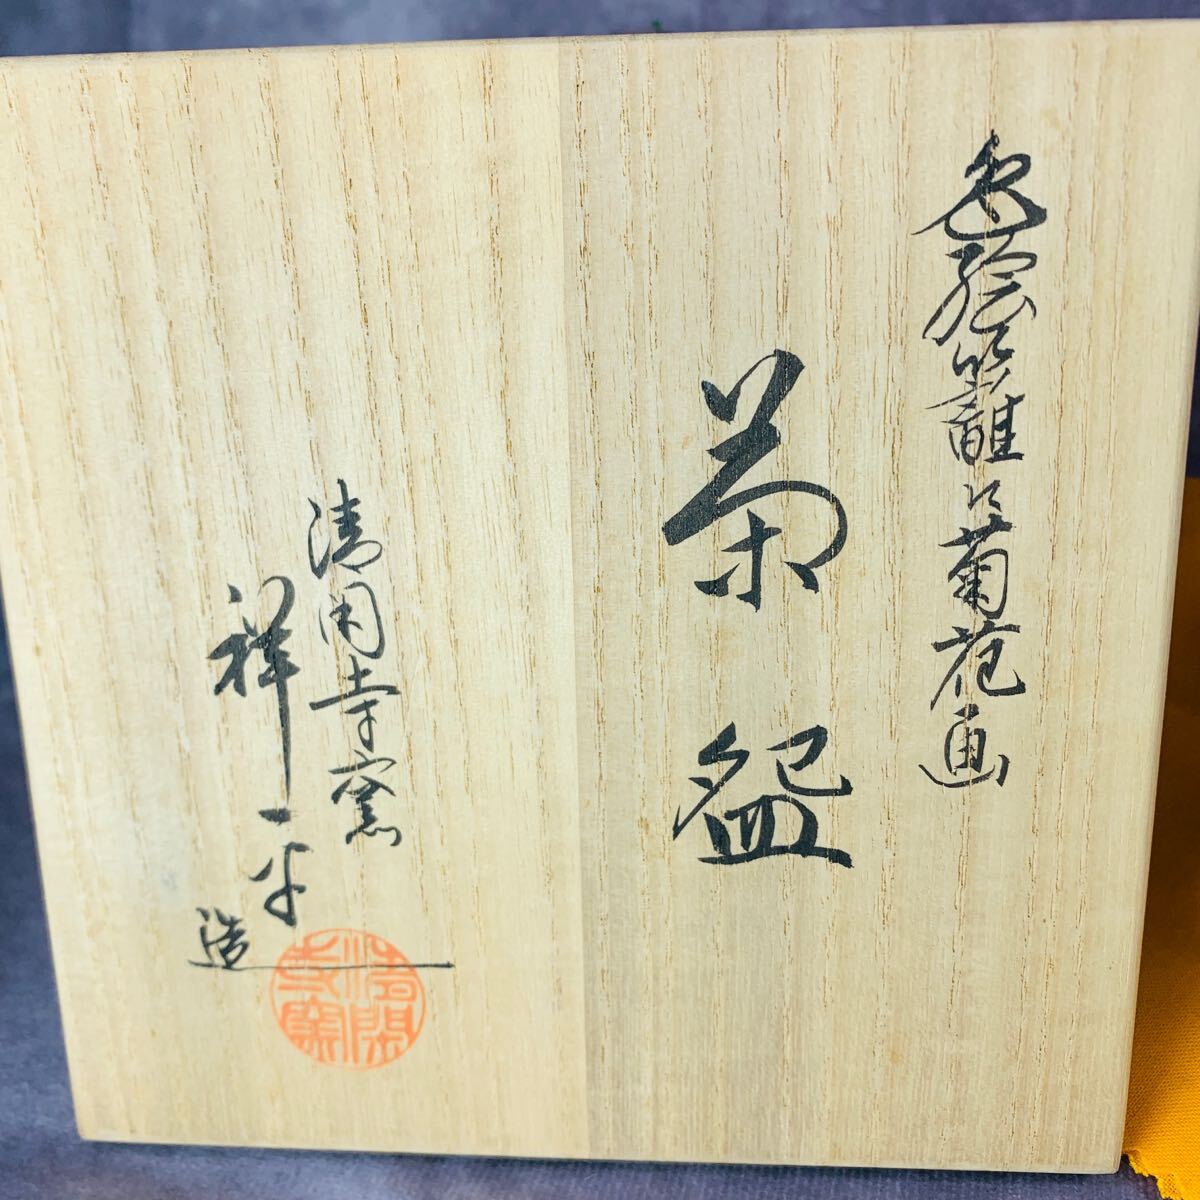 色絵籬に菊花画
茶盌
清閑寺窯
祥平
造
清閑寺窯